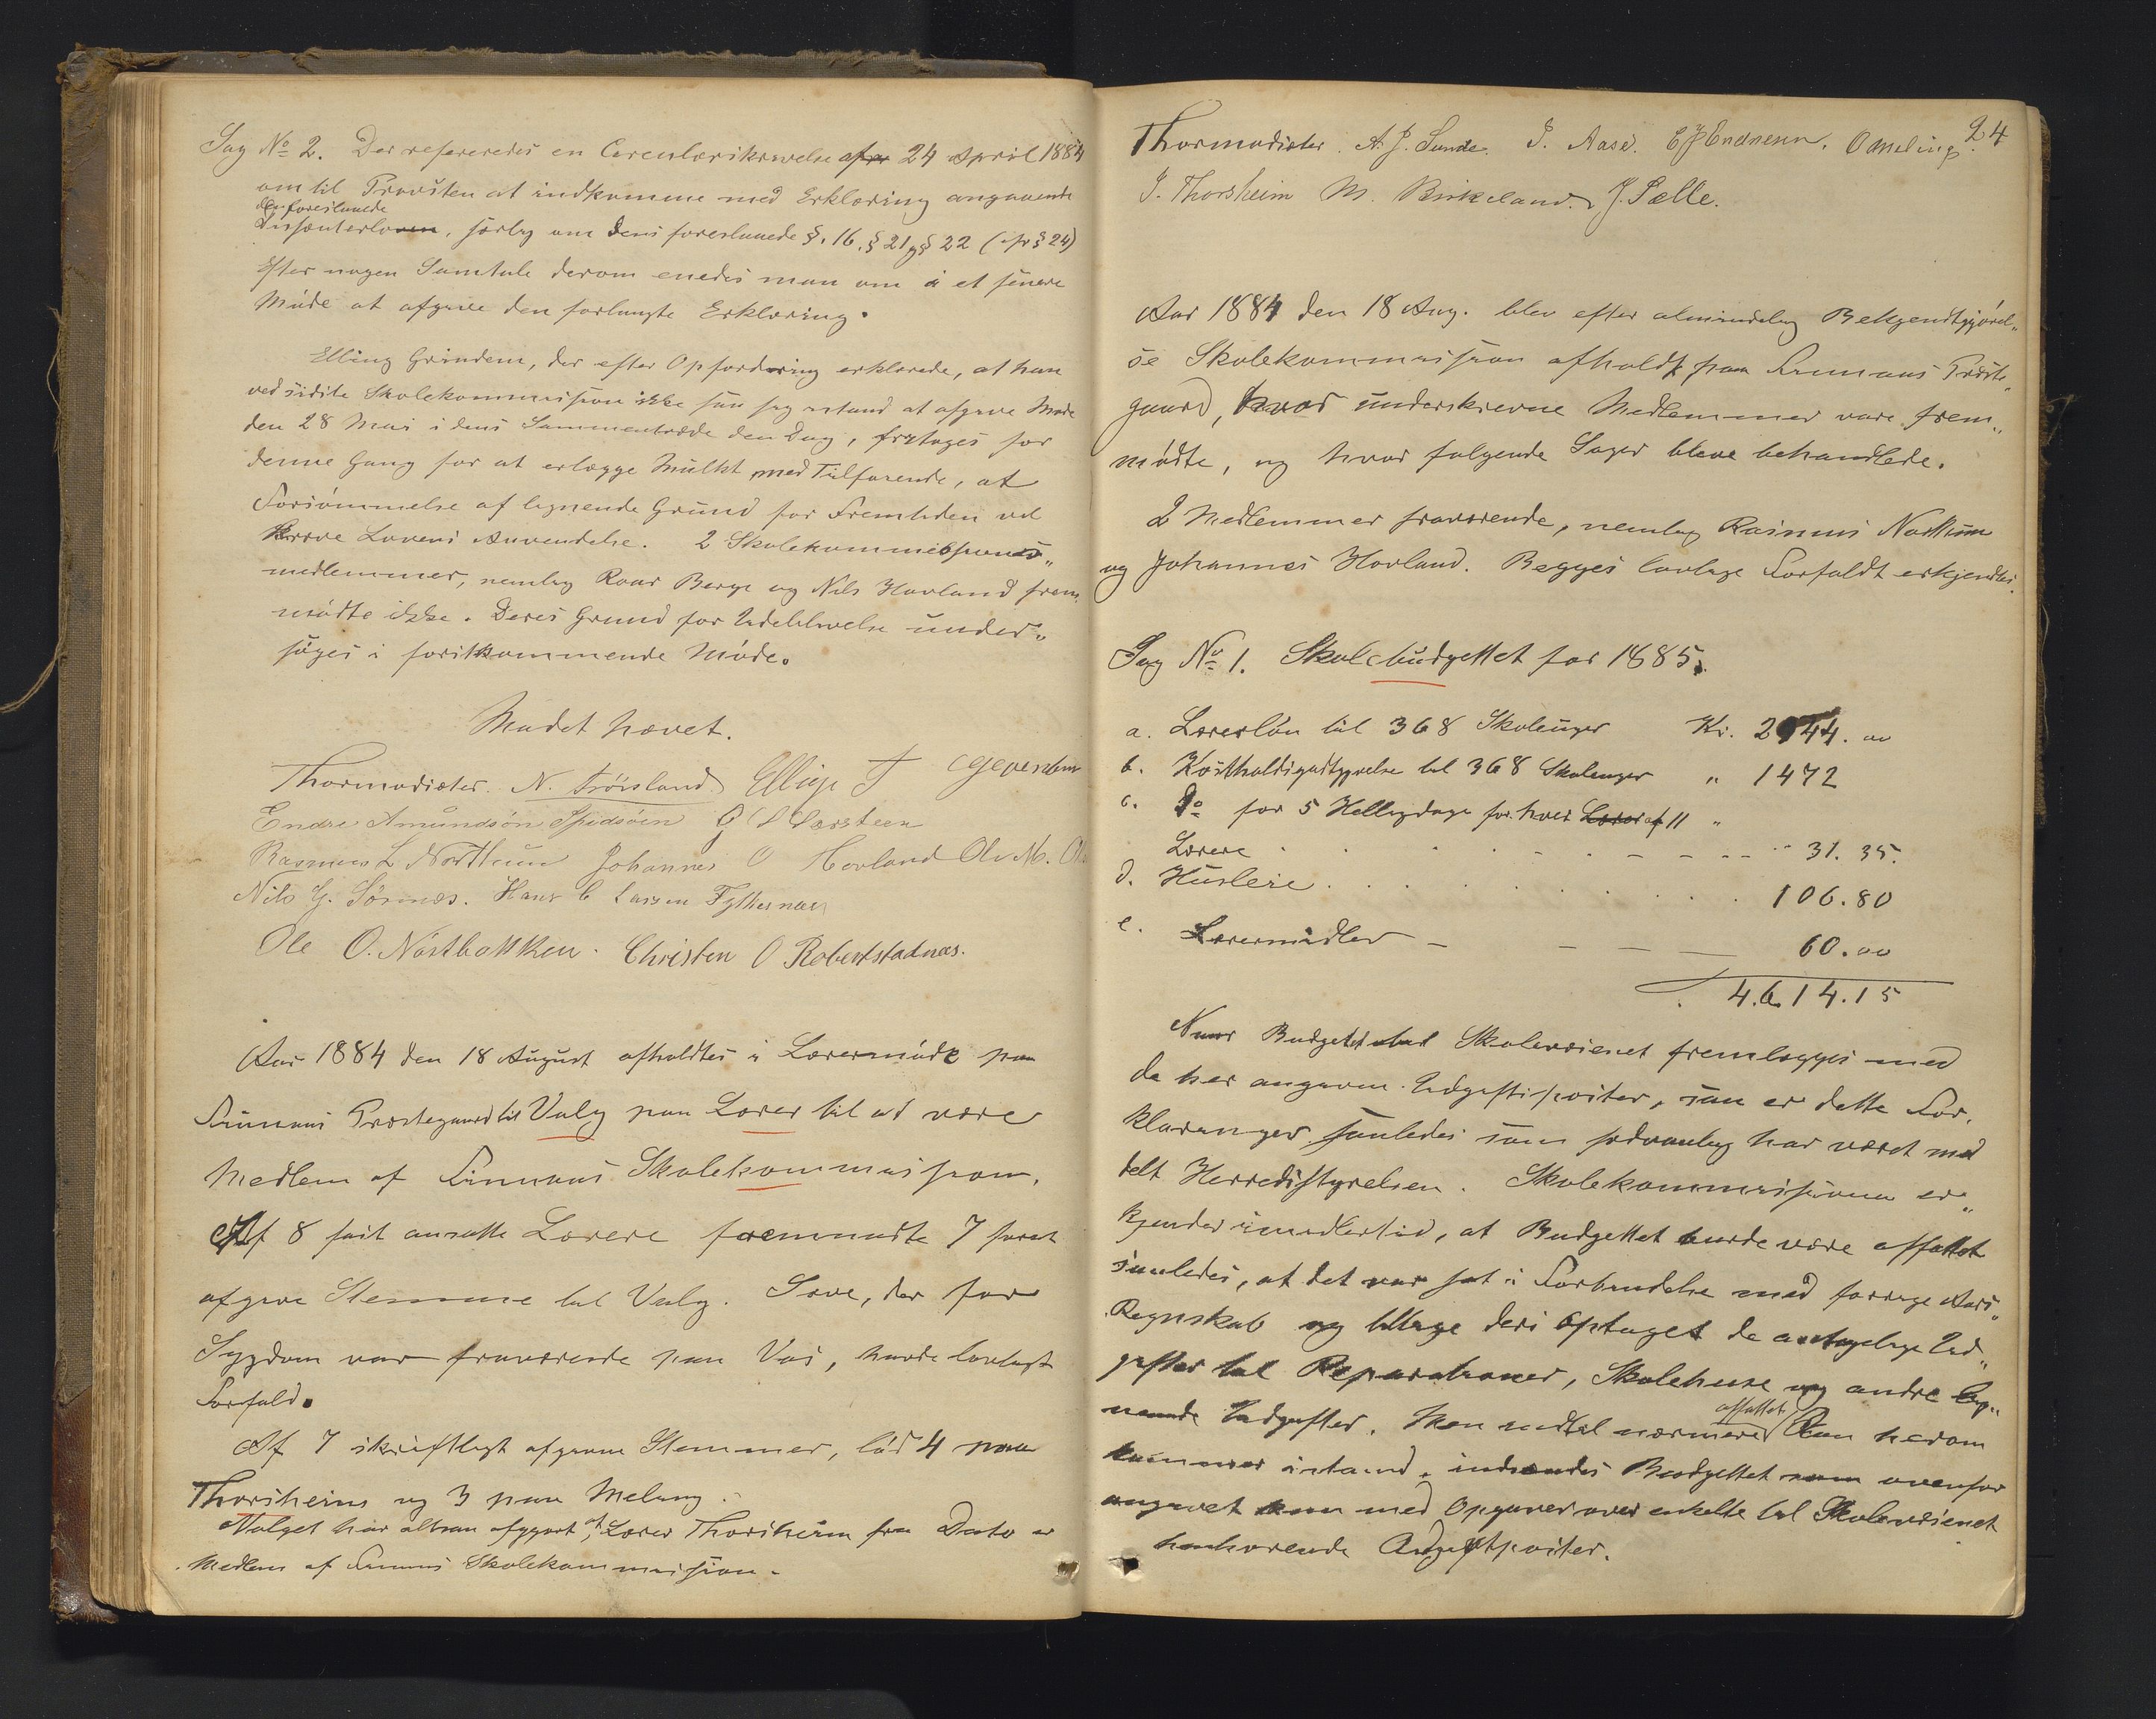 Sag No 2. Der refereredes en Circulærskrivelse af 24 April 1884
om til Provsten at indkomme med Erklæring angaaende
den foreslaaede
Dissenterloven, særlig om dens foreslaaede §. 16, § 21 og § 22 (cfr § 24)
Efter nogen Samtale derom enedes man om i et senere
Møde at afgive den forlangte Erklæring.
Elling Grindem, der efter Opfordring erklærede, at han
ved sidste Skolekommission ikke saa sig istand at afgive Møde
den 28 Mai i dens Sammentræde den Dag, fritages for
denne Gang for at erlægge Mulkt med Tilføiende, at
Forsømmelse af lignende Grund for Fremtiden vil
kræve Lovens Anvendelse. 2 Skolekommissions„
medlemmer, nemlig Roar Berge og Nils Hovland frem
mødte ikke. Deres Grund for Udeblivelse under„
søges i førstkommende Møde.
Mødet hævet.
Thormodsæter. N. Frøisland Elling T
Endre Amundsøn G L Larsteen
Rasmus L Northun Johannes O Hovland Ole M.
Nils G. Sørnæs. Hans C Larsen
Ole O. Nøstbakken. Christen O Robertstadnæs.
Aar 1884 den 18 August afholdtes i Lærermøde paa
Finnaas Prestegaard til Valg paa Lærer til at være
Medlem af Finnaas Skolekommission.
Af 8 fast ansatte Lærere fremmødte 7 for at
afgive Stemme til Valg. Save, der for
Sygdom var fraværende paa Vos, havde lovligt
Forfald.
Af 7 skriftligt afgivne Stemmer, lød 4 paa
Thorsheim og 3 paa Meling.
Valget har altsaa afgjort at Lærer Thorsheim fra Dato er
Medlem af Finnaas Skolekommission.
24
Thormodsæter. A. J. Sunde. S. Aase. E J Endresen. O Meling.
J. Thorsheim M. Birkeland. J. Sælle.
Aar 1884 den 18 Aug. blev efter almindelig Bekjendtgjørel„
se Skolekommission afholdt paa Finnaas Præste„
gaard, hvor underskrevne Medlemmer vare frem„
mødte, og hvor følgende Sager bleve behandlede.
2 Medlemmer fraværende, nemlig Rasmus Northun
og Johannes Hovland. Begges lovlige Forfaldt erkjendtes.
Sag No 1. Skolebudgettet for 1885.
a. Lærerløn til 368 Skoleuger Kr. 2944. 00
b. Kostholdsgodtgjørelse til 368 Skoleuger „ 1472
c. Do for 5 Helligdage for hver Lærer af 11 „
Lærere 31. 35.
d. Husleie 106.80
e. Læremidler 60.00
4.614.15
Naar Budgettet Skolevæsenet fremlægges med
de her angivne Udgiftsposter, saa er dette For„
klaringer saaledes som sedvanlig har været med
delt Herredsstyrelsen. Skolekommissionen er„
kjender imidlertid, at Budgettet burde være affattet
saaledes, at det var sat i Forbindelse med forrige Aars„
Regnskab og tillige deri optaget de antagelige Ud„
gifter til Reparationer, Skolehuse og andre lig„
nende Udgifter. Men indtil nærmere affattet Plan herom
kommer istand, indsendes Budgettet som ovenfor
angivet kun med Opgaver over enkelte til Skolevæsenet
henhørende Udgiftsposter.